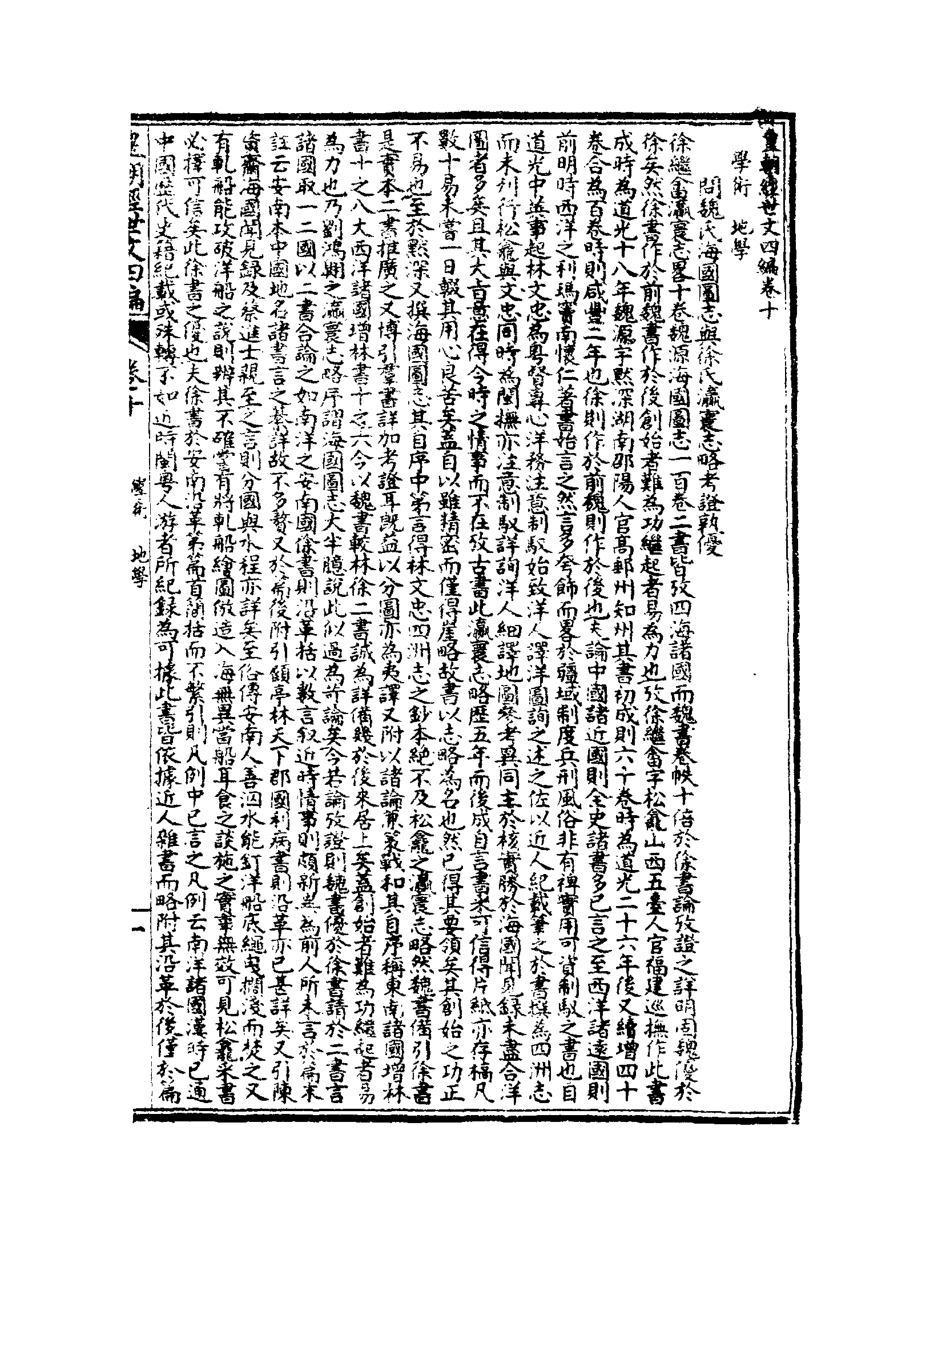 皇朝經世文四編卷十
學術　地學
問魏氏海國圖志與徐氏瀛寰志略考證孰優
徐繼畬瀛寰志畧十卷魏源海國圖志一百卷二書皆攷四海諸國而魏書卷帙十倍於徐書論攷證之詳明固魏優於
徐矣然徐書作於前魏書作於後創始者難為功繼起者易為力也攷徐繼畬字松龕山西五臺人官福建巡撫作此書
成時為道光十八年魏源字默深湖南邵陽人官高郵州知州其書初成則六十卷時為道光二十六年後又續增四十
卷合為百卷時則咸豐二年也徐則作於前魏則作於後也夫論中國諸近國則全史諸書多已言之至西洋諸遠國則
前明時西洋之利瑪竇南懷仁著書始言之然言多夸飾而畧於疆域制度兵刑風俗非有裨實用可資制馭之書也自
道光中英事起林文忠為粵督專心洋務注意制馭始致洋人譯洋圖詢之述之佐以近人紀載筆之於書撰為四洲志
而未刋行松龕與文忠同時為閩撫亦注意制馭詳詢洋人細譯地圖參考異同主於核實勝於海國聞見錄未盡合洋
圖者多矣且其大旨意在得今時之情事而不在攷古書此瀛寰志略歷五年而後成自言書采可信得片紙亦存稿凡
數十易未嘗一日輟其用心良苦矣蓋自以雖精密而僅得崖略故書以志略為名也然已得其要領矣其創始之功正
不易也至於默深又撰海國圖志其自序中第言得林文忠四洲志之鈔本絕不及松龕之瀛寰志略然魏書備引徐書
是實本二書推廣之又博引羣書詳加考證耳旣益以分圖亦為夷譯又附以諸論兼籌戰和其自序稱東南諸國增林
書十之八大西洋諸國增林書十之六今以魏書較林徐二書誠為詳備幾於後來居上矣蓋創始者難為功繼起者易
為力也乃劉鴻翺之瀛寰志略序謂海國圖志大半臆說此似過為訐論矣今若論攷證則魏書優於徐書請於二書言
諸國取一二國以二書合論之如南洋之安南國徐書則沿革括以數言叙近時情事則頗新異為前人所未言於篇末
註云安南本中國地名諸書言之綦詳故不多贅又於篇後附引顧亭林天下郡國利病書則沿革亦已甚詳矣又引陳
資齋海國聞見錄及蔡進士親至之言則分國與水程亦詳矣至俗傳安南人善泅水能釘洋船底繩曳擱淺而焚之又
有軋船能攻破洋船之說則辨其不確嘗有將軋船繪圖倣造入海無異當船耳食之談施之實事無效可見松龕采書
必擇可信矣此徐書之優也夫徐書於安南沿革第篇首簡括而不繁引則凡例中已言之凡例云南洋諸國漢時已通
中國歷代史籍紀載或殊轉不如近時閩粵人游者所紀錄為可據此書皆依據近人雜書而略附其沿革於後僅於篇
皇朝經世文四編　卷十　學術　地學　一